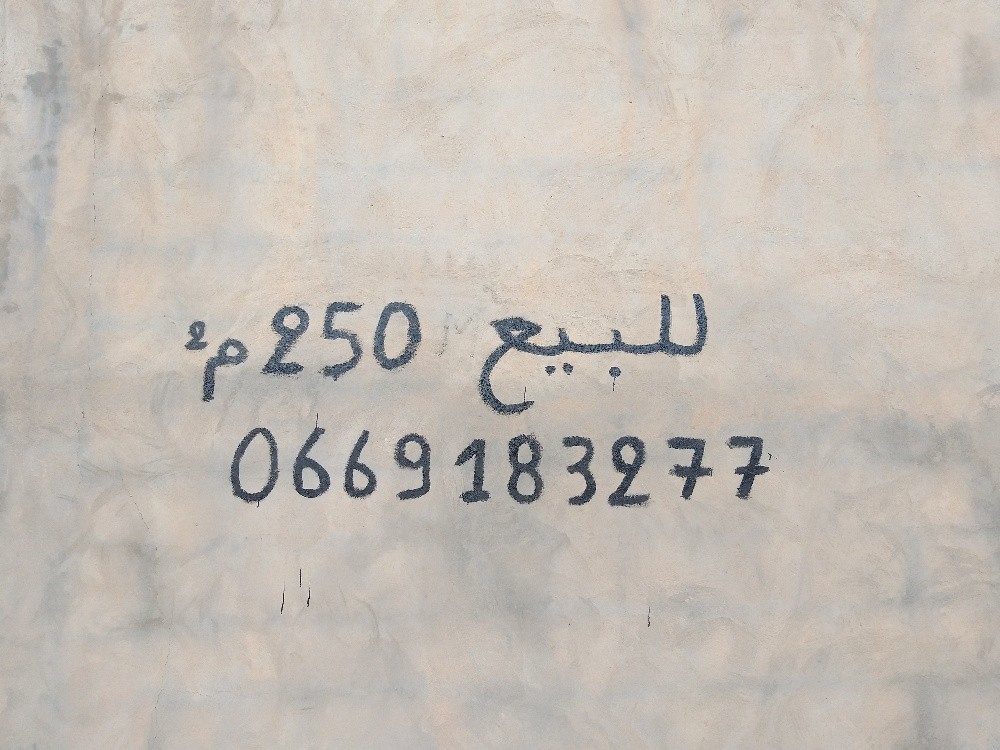 للبيع 250 م²
0669183277